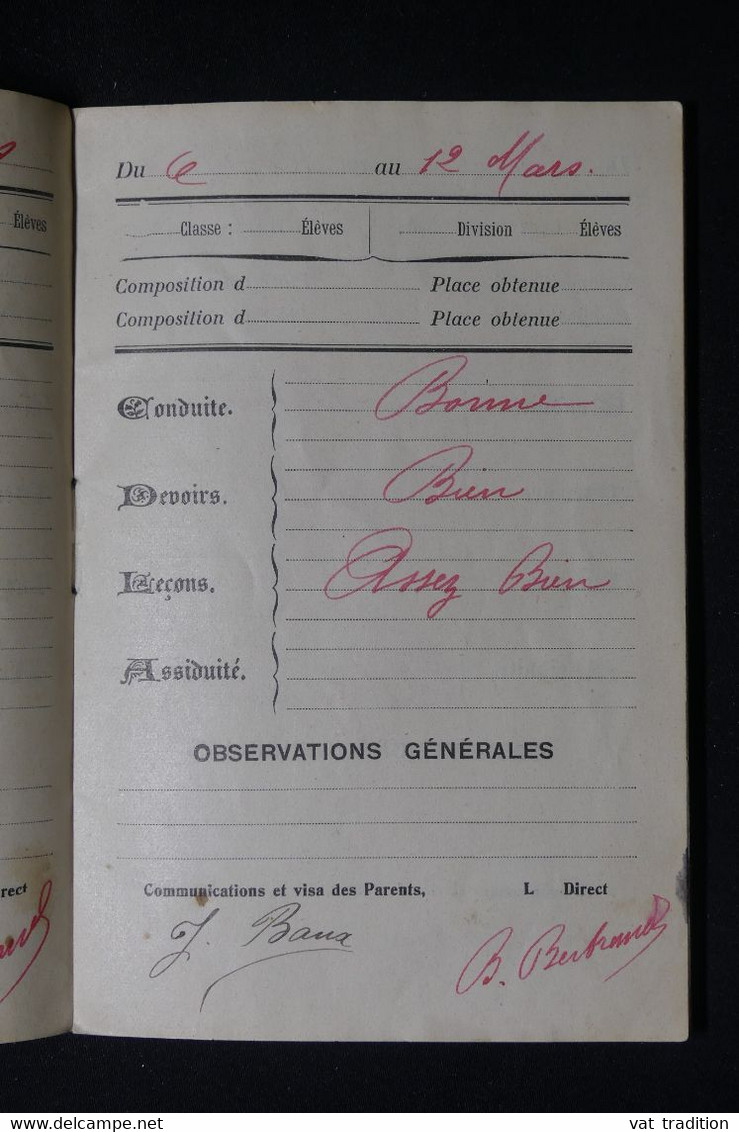 Du 6 au 12 Mars.
Élèves
Classe : Élèves Division Élèves
Composition d Place obtenue
Composition d Place obtenue
Conduite. Bonne
Devoirs. Bien
Leçons. Assez Bien
Assiduité.
OBSERVATIONS GÉNÉRALES
rect
Communications et visa des Parents, L Direct
J. Baux
B. Bertrand
delcampe.net
vat tradition